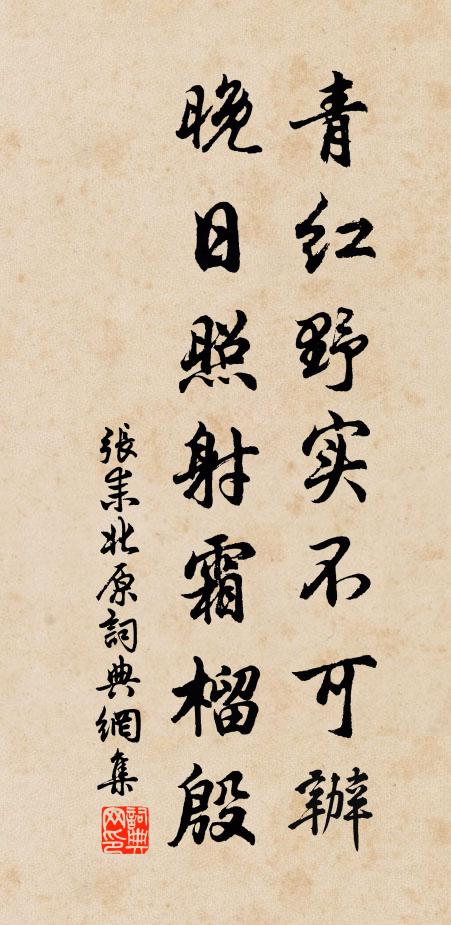 青红野实不可辦
晚日照射霜榴殷
張耒北原詞典網集
詞典網印